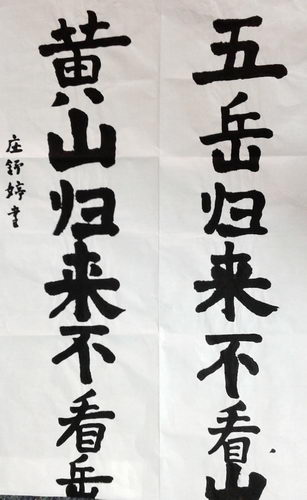 五岳归来不看山
黄山归来不看岳
庄舒婷书